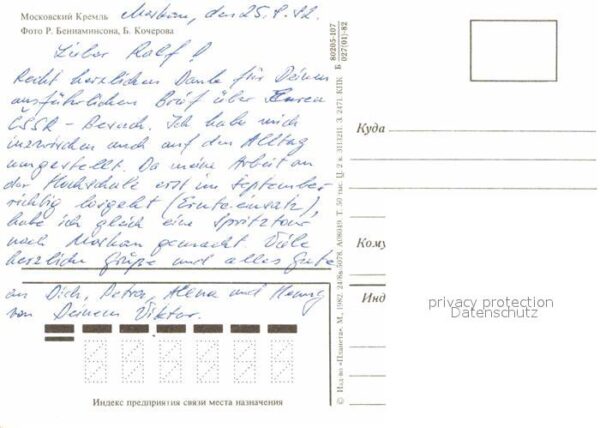 Московский Кремль
Фото Р. Бениаминсона, Б. Кочерова
Moskau, den 25.8.82
Lieber Ralf!
Recht herzlichen Dank für Deinen
ausführlichen Brief über Euren
ČSSR-Besuch. Ich habe mich
inzwischen auch auf den Alltag
umgestellt. Da meine Arbeit an
der Hochschule erst im September
richtig losgeht (Ernteeinsatz),
habe ich gleich eine Spritztour
nach Moskau gemacht. Viele
herzliche Grüße und alles Gute
an Dich, Petra, und
von Deinem Viktor.
Индекс предприятия связи места назначения
© Изд-во «Планета». М., 1982. Т. 50 тыс. Ц. 2 к. З. 2471. КПК
Б 80205-107
027(01)-82
Куда
Кому
Инд
privacy protection
Datenschutz